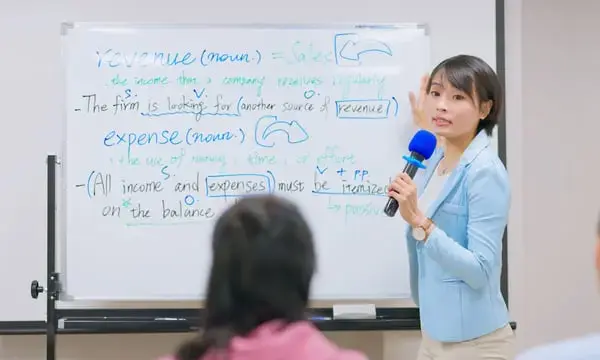 revenue (noun.) = Sales
the income that a company receives regularly
S. V. O.
-The firm is looking for (another source of revenue)
expense (noun.)
the use of money, time, or effort
S. V + PP
-(All income and expenses) must be itemized
on *the balance
O.
↳ passiv